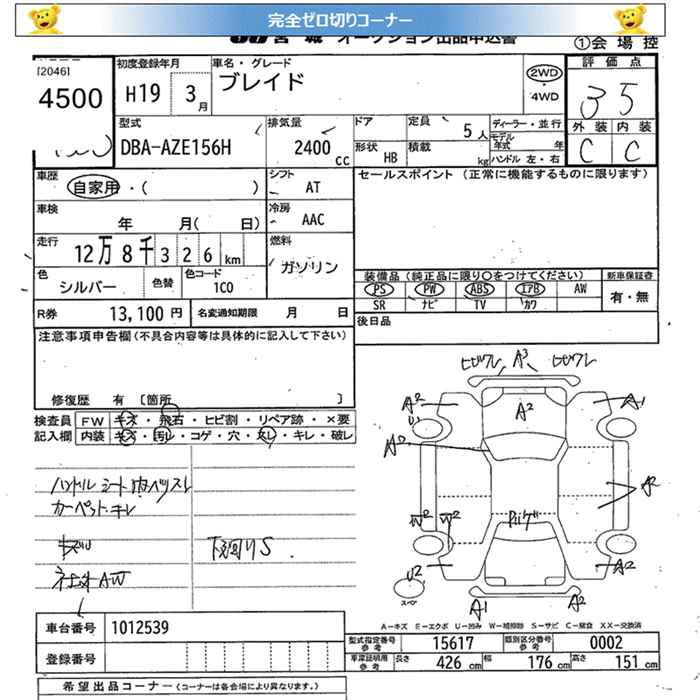 完全ゼロ切りコーナー
宮城 オークション出品申込書
①会場控
[2046]
4500
初度登録年月
H19 3月
車名・グレード
ブレイド
2WD
・4WD
評価点
3 5
外装 内装
C C
型式
DBA-AZE156H
排気量
2400 cc
ドア
形状 HB
定員 5人
積載 kg
ディーラー・並行
モデル年式 年
ハンドル 左・右
車歴
自家用・( )
シフト
AT
セールスポイント (正常に機能するものに限ります)
車検
年 月( 日)
冷房
AAC
走行
12万8千326km
燃料
ガソリン
色
シルバー
色替
色コード
1C0
装備品 (純正品に限り○をつけてください)
新車保証書
PS PW ABS エアB AW
有・無
SR ナビ TV カワ
R券 13,100円
名変通知期限 月 日
後日品
注意事項申告欄 (不具合内容等は具体的に記入して下さい)
修復歴 有 [箇所 ]
検査員記入欄
FW キズ・飛石・ヒビ割・リペア跡・×要
内装 キズ・汚レ・コゲ・穴・スレ・キレ・破レ
ハンドル シート 内ヘリスレ
カーペット キレ
キズ
下回りS
社外AW
ヒビワレ A3 ヒビワレ
A2
U1
A2
A1
A2
A2
W2 W2
U2
A2
A1
A2
スペア
A-キズ E-エクボ U-凹み W-補修跡 S-サビ C-腐食 XX-交換済
車台番号 1012539
登録番号
型式指定番号 参考 15617
類別区分番号 参考 0002
車庫証明用 参考 長さ 426 cm 幅 176 cm 高さ 151 cm
希望出品コーナー (コーナーは各会場により異なります。)